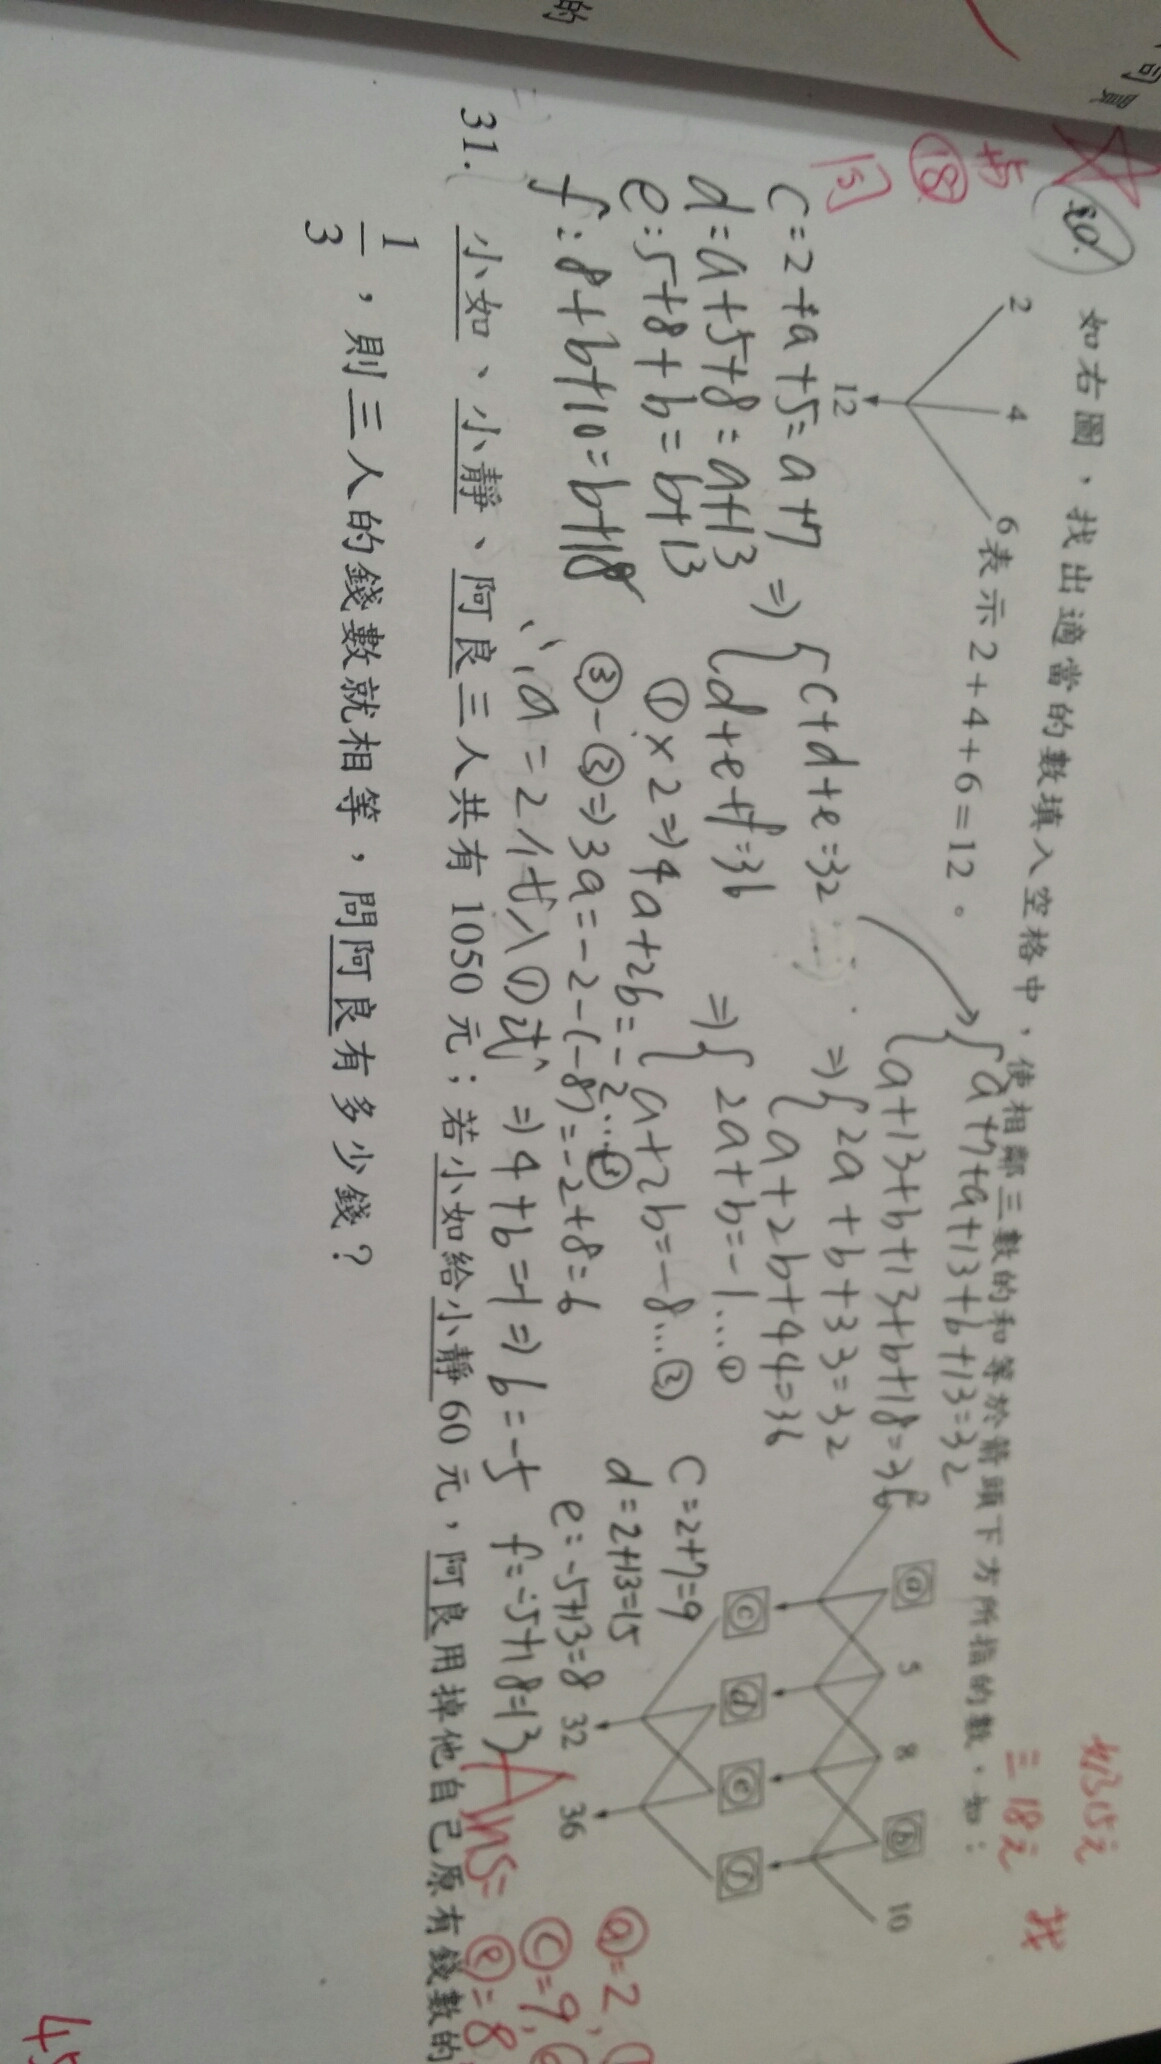 如315元
三18元 找
30. 如右圖,找出適當的數填入空格中,使相鄰三數的和等於箭頭下方所指的數,如:
2 4 6 表示2+4+6=12。
12
+5
⑱
c=2+a+5=a+7
d=a+5+8=a+13
e=5+8+b=b+13
f=8+b+10=b+18
⇒ { c+d+e=32
d+e+f=36
{ a+7+a+13+b+13=32
a+13+b+13+b+18=36
⇒ { 2a+b+33=32
a+2b+44=36
⇒ { 2a+b=-1...①
a+2b=-8...②
①×2⇒4a+2b=-2...③
③-②⇒3a=-2-(-8)=-2+8=6
∴a=2代入①式⇒4+b=-1⇒b=-5
c=2+7=9
d=2+13=15
e=-5+13=8
f=-5+18=13
2 ⓐ 5 8 ⓑ 10
ⓒ ⓓ ⓔ ⓕ
32 36
Ans=
ⓐ=2,
ⓒ=9,
ⓔ=8
31. 小如、小靜、阿良三人共有1050元;若小如給小靜60元,阿良用掉他自己原有錢數的
1/3,則三人的錢數就相等,問阿良有多少錢?